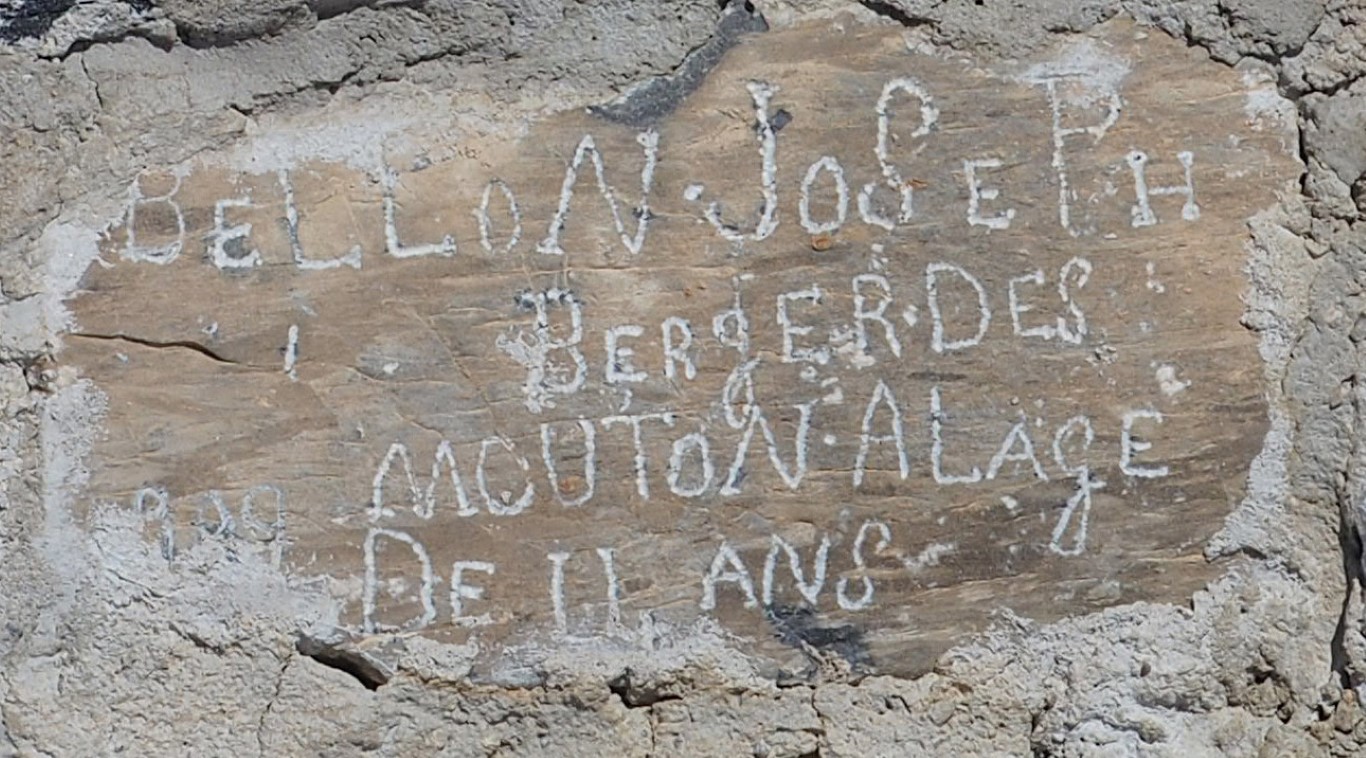 BELLON·JOSEPH
BERgER·DES
MOUTON·A LAgE
DE 11 ANS